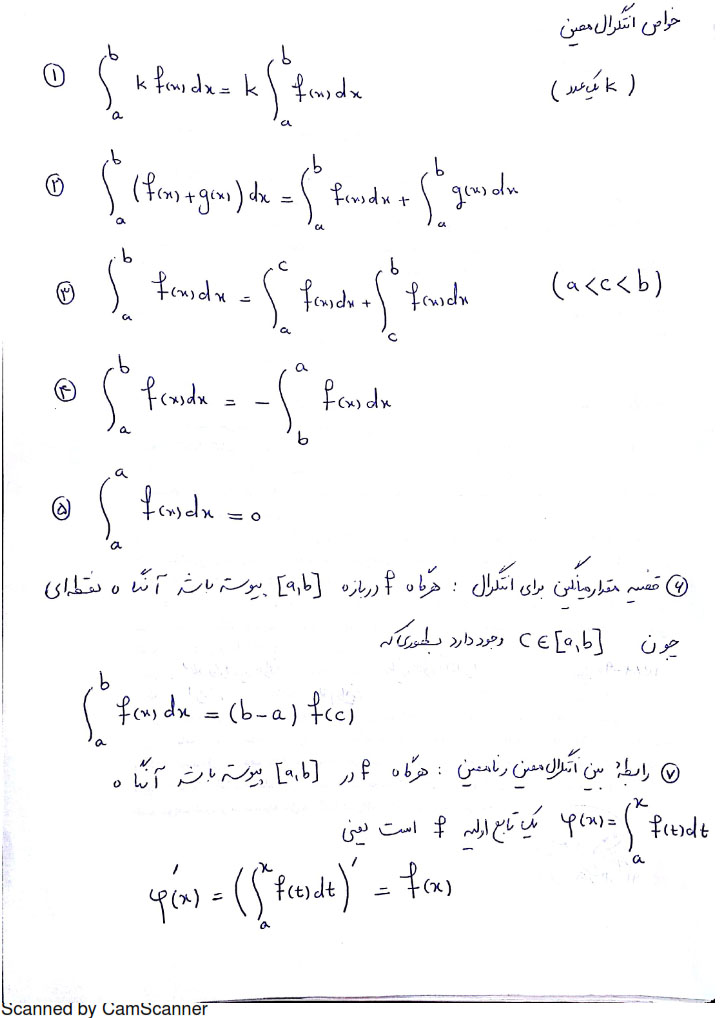 خواص انتگرال معین
① ∫_a^b k f(x) dx = k ∫_a^b f(x) dx (k یک عدد)
② ∫_a^b (f(x) + g(x)) dx = ∫_a^b f(x) dx + ∫_a^b g(x) dx
③ ∫_a^b f(x) dx = ∫_a^c f(x) dx + ∫_c^b f(x) dx (a<c<b)
④ ∫_a^b f(x) dx = - ∫_b^a f(x) dx
⑤ ∫_a^a f(x) dx = 0
⑥ قضیه مقدار میانگین برای انتگرال : هرگاه f در بازه [a,b] پیوسته باشد آنگاه نقطه‌ای
چون c∈[a,b] وجود دارد بطوری که
∫_a^b f(x) dx = (b-a) f(c)
⑦ رابطهٔ بین انتگرال معین و نامعین : هرگاه f در [a,b] پیوسته باشد آنگاه
φ(x) = ∫_a^x f(t) dt یک تابع اولیه f است یعنی
φ'(x) = (∫_a^x f(t) dt)' = f(x)
Scanned by CamScanner